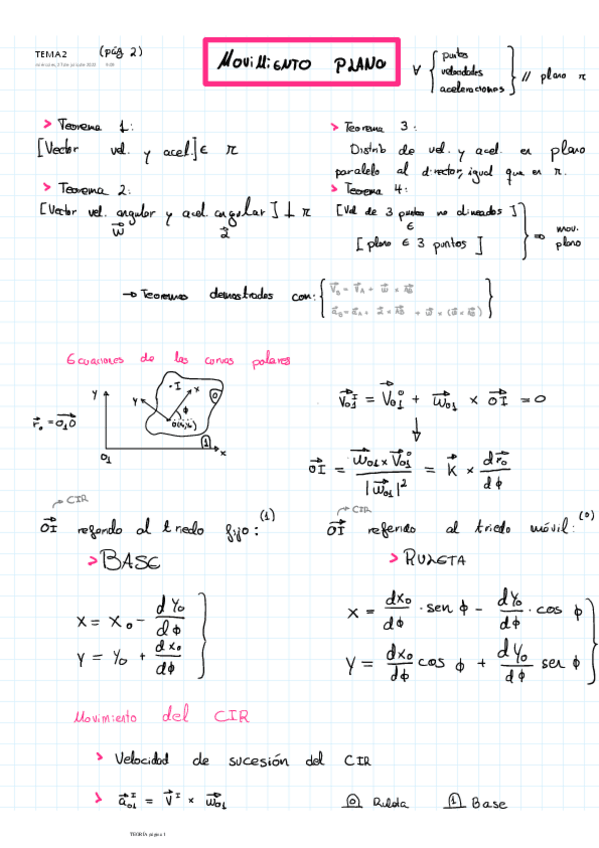 TEMA 2 (pág 2)
MOVIMIENTO PLANO
∀ { puntos velocidades aceleraciones } // plano π
> Teorema 1:
[Vector vel. y acel.] ∈ π
> Teorema 2:
[Vector vel. angular y acel. angular] ⊥ π
> Teorema 3:
Distrib de vel. y acel. en plano
paralelo al director, igual que en π.
> Teorema 4:
[Vel de 3 puntos no alineados]
∈
[plano ∈ 3 puntos] } ⇒ mov. plano
→ Teoremas demostrados con:
Ecuaciones de las curvas polares
Y Y I x 0 ϕ
r⃗₀ = O₁O⃗
O₁ 1 x
v⃗₀₁ᴵ = v⃗₀₁⁰ + ω⃗₀₁ × OI⃗ = 0
↓
OI⃗ = ω⃗₀₁ × v⃗₀₁⁰ / |ω⃗₀₁|² = k⃗ × dr⃗₀/dϕ
CIR
OI⃗ referido al triedo fijo: (1)
> BASE
x = x₀ - dy₀/dϕ
y = y₀ + dx₀/dϕ
CIR
OI⃗ referido al triedo móvil: (0)
> RULETA
x = dx₀/dϕ · sen ϕ - dy₀/dϕ · cos ϕ
y = dx₀/dϕ cos ϕ + dy₀/dϕ sen ϕ
Movimiento del CIR
> Velocidad de sucesión del CIR
> a⃗₀₁ᴵ = v⃗ᴵ × ω⃗₀₁
0 Ruleta 1 Base
TEORÍA página 1